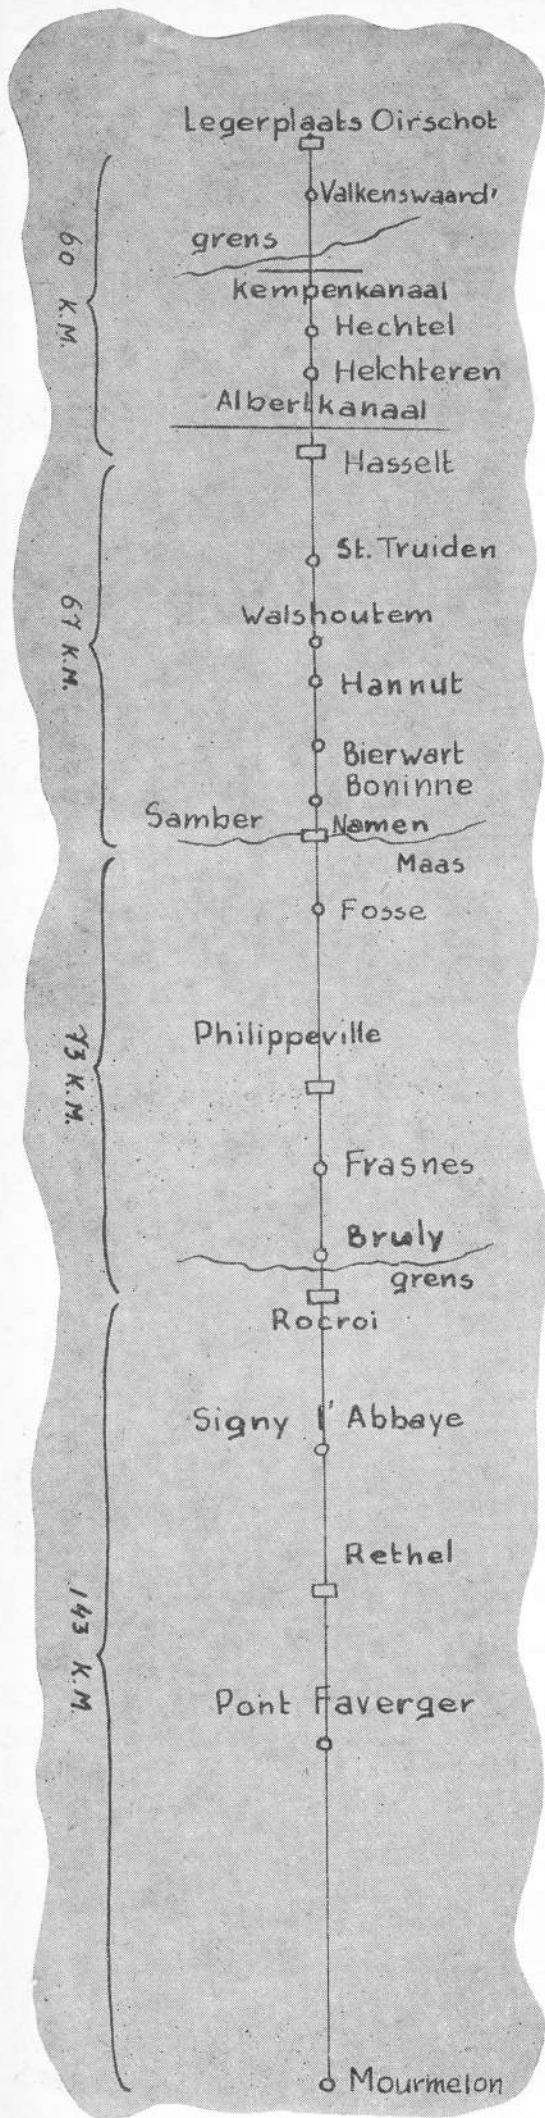 Legerplaats Oirschot
Valkenswaard'
grens
Kempenkanaal
Hechtel
Helchteren
Albertkanaal
60 K.M.
Hasselt
St. Truiden
Walshoutem
67 K.M.
Hannut
Bierwart
Boninne
Samber
Namen
Maas
Fosse
Philippeville
73 K.M.
Frasnes
Bruly
grens
Rocroi
Signy l'Abbaye
Rethel
143 K.M.
Pont Faverger
Mourmelon